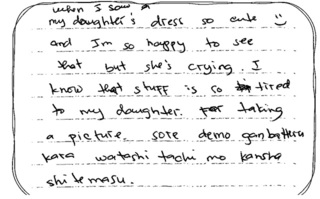 when I saw
my daughter's dress so cute
and Im so happy to see
that but she's crying. I
know that stuff is so tired
to my daughter. taking
a picture. sore demo ganbatteru
kara watashi tachi mo kansha
shitemasu.